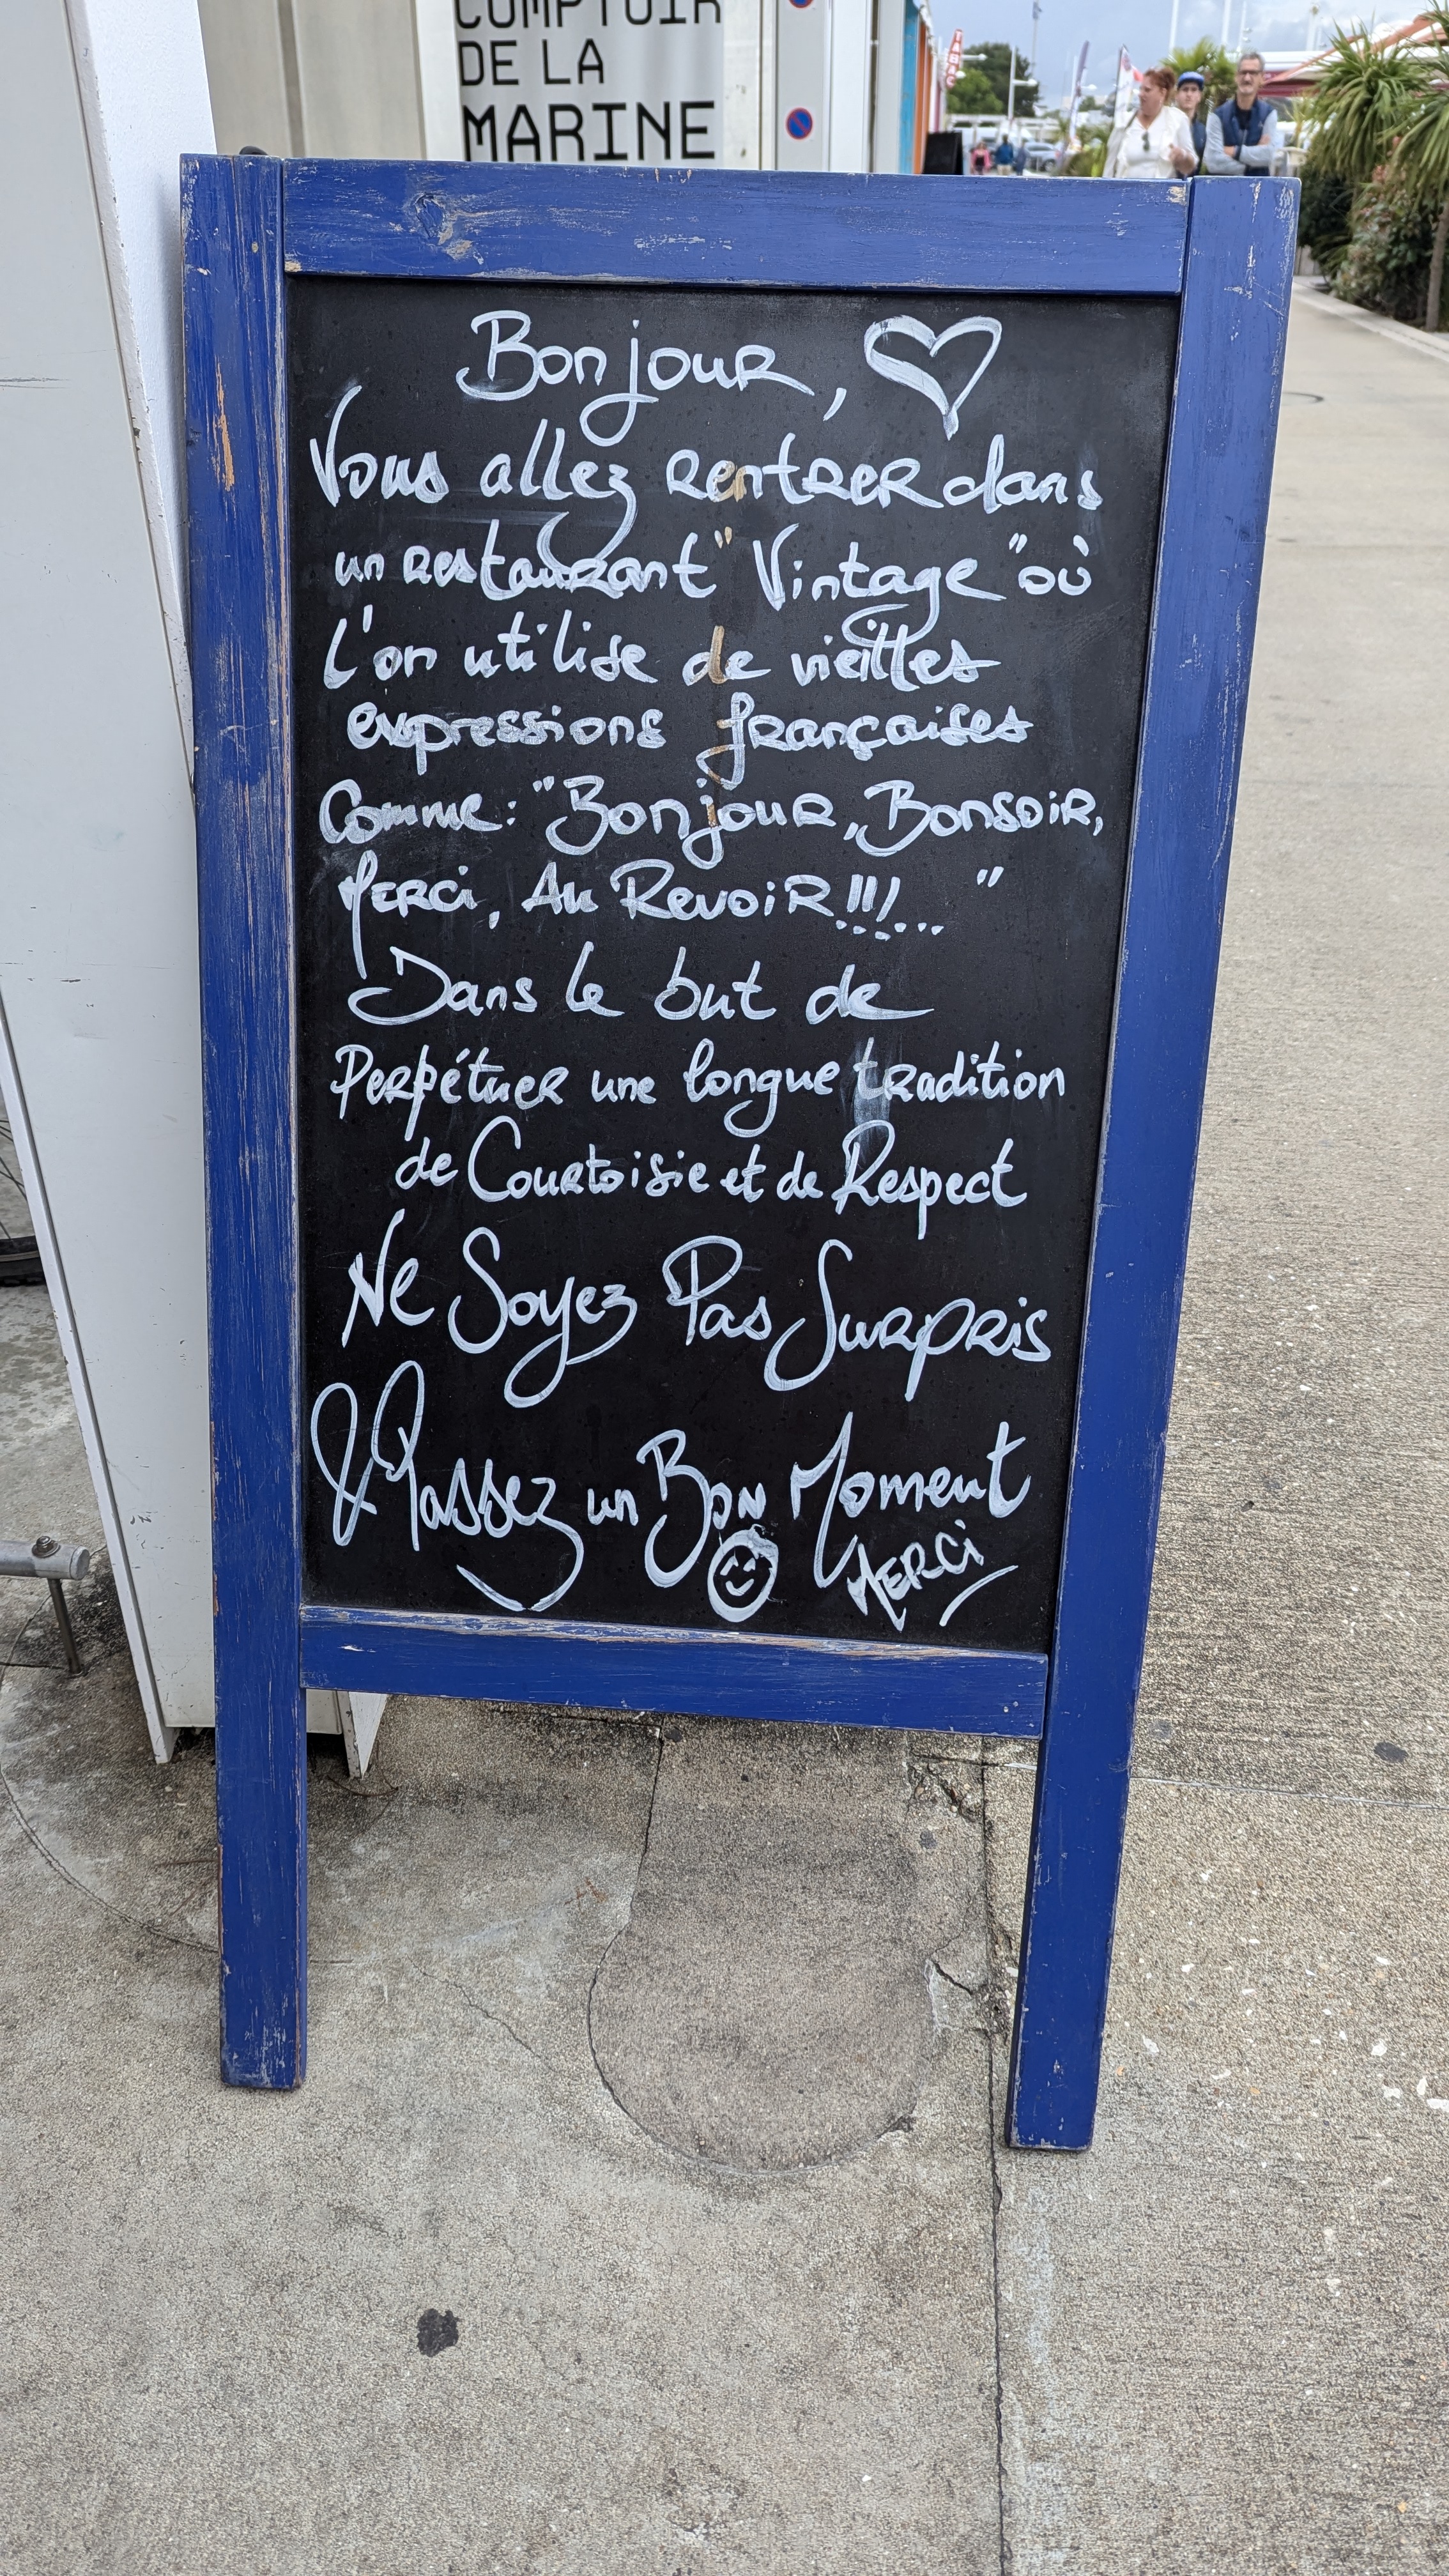 COMPTOIR
DE LA
MARINE
TABAC
Bonjour,
Vous allez rentrer dans
un restaurant "Vintage" où
l'on utilise de vieilles
expressions françaises
Comme: "Bonjour, Bonsoir,
Merci, Au Revoir!!!... "
Dans le but de
Perpétuer une longue tradition
de Courtoisie et de Respect
Ne Soyez Pas Surpris
& Passez un Bon Moment
Merci